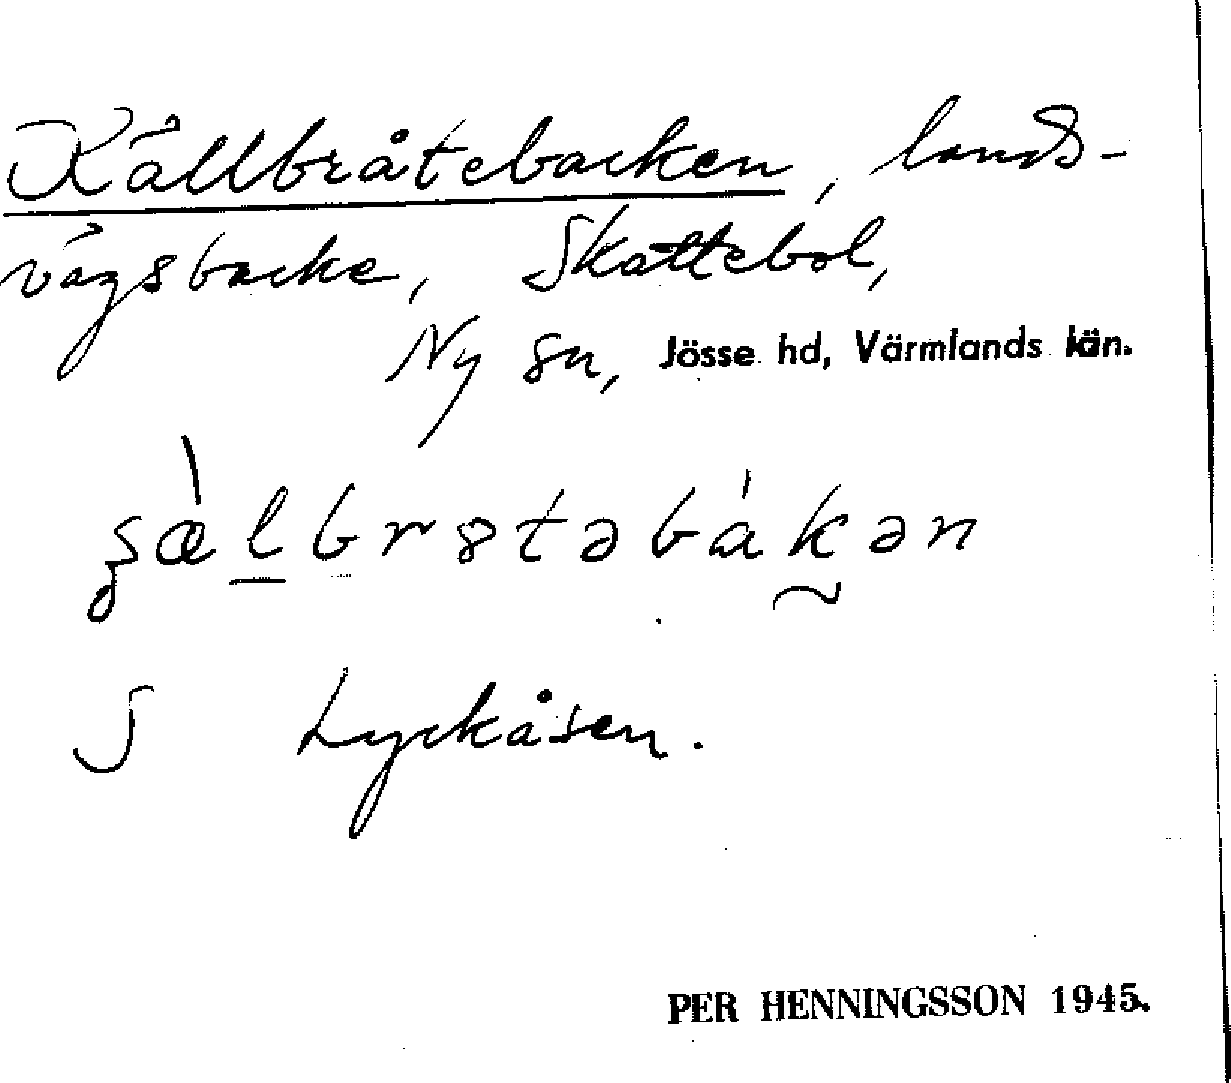 Källbråtebacken, lands-
vägsbacke, Skattebol,
Ny sn, Jösse hd, Värmlands län.
ʂæ̀lbr8təbákən
S Lyckåsen.
PER HENNINGSSON 1945.